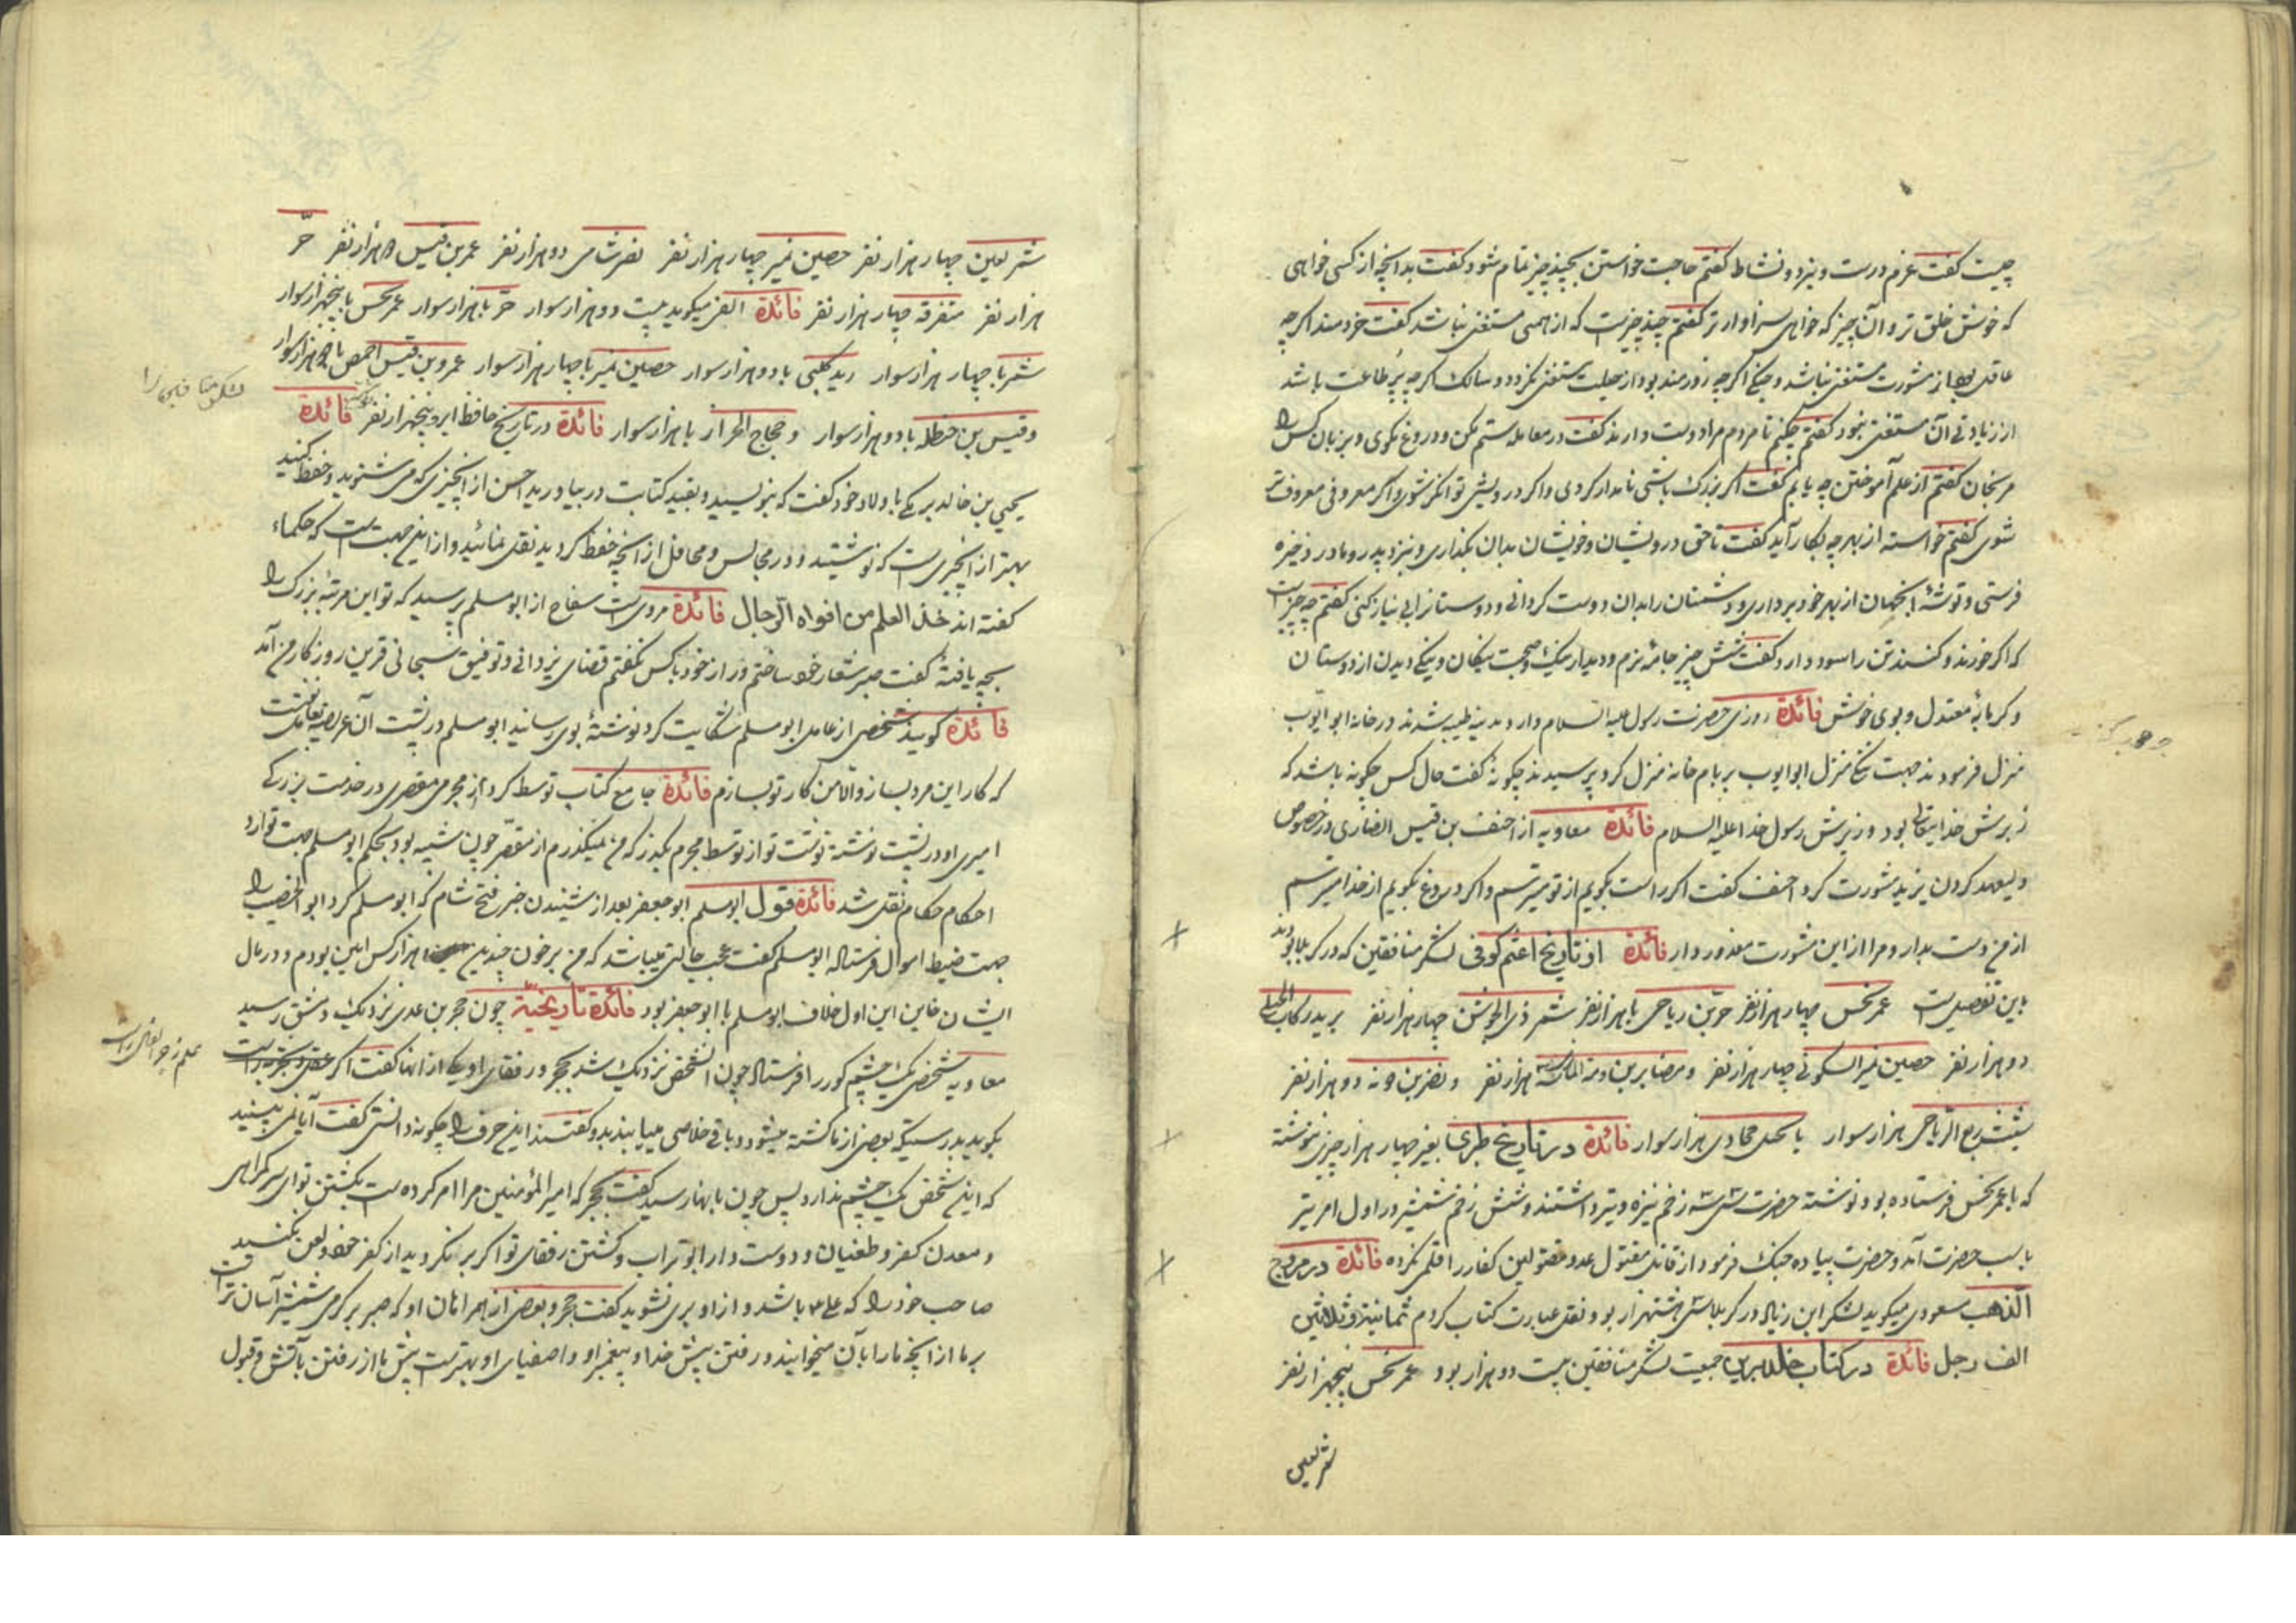 چیست گفت عزم درست و نیرو و نشاط گفتم حاجت خواستن بچند چیز تمام شود گفت بدانچه از کسی خواهی
که خوش خلق تر و آن چیز که خواهی سزاوارتر گفتم چند چیزست که از همه مستغنی نباشد گفت خردمند اگرچه
عاقل بود از مشورت مستغنی نباشد و جنگی اگرچه زورمند بود از حیلت مستغنی نگردد و سالک اگرچه پر طاعت باشد
از زیادتی آن مستغنی نبود گفتم چکنم تا مردم مرا دوست دارند گفت در معامله ستم مکن و دروغ مگوی و بزبان کس را
مرنجان گفتم از علم آموختن چه یابم گفت اگر بزرگ باشی نامدار گردی و اگر درویش توانگر شوی و اگر معروفی معروف تر
شوی گفتم خواسته از بهر چه بکار آید گفت تا حق درویشان و خویشان بدان بگذاری و نزد پدر و مادر ذخیره
فرستی و توشهٔ آنجهان از بهر خود برداری و دشمنان را بدان دوست گردانی و دوستانرا بی نیاز کنی گفتم چه چیزست
که اگر خورند و کنند تن را سود دارد گفت شش چیز جامهٔ نرم و دیدار نیک و صحبت نیکان و نیکی دیدن از دوستان
و گرمابهٔ معتدل و بوی خوش فائدة روزی حضرت رسول علیه السلام وارد مدینه طیبه شدند در خانه ابو ایوب
منزل فرمودند جهت تنگی منزل ابو ایوب بر بام خانه منزل کرد پرسیدند چگونهٔ گفت حال کس چگونه باشد که
زبرش خدایتعالی بود و زیرش رسول خدا علیه السلام فائدة معاویه از احنف بن قیس انصاری در خصوص
ولیعهد کردن یزید مشورت کرد احنف گفت اگر راست بگویم از تو میترسم و اگر دروغ بگویم از خدا میترسم
از من دست بدار و مرا از این مشورت معذور دار فائدة از تاریخ اعثم کوفی لشکر منافقین که در کربلا بودند
باین تفصیل است عمر نحس چهار هزار نفر حر بن ریاحی با هزار نفر شمر ذی الجوشن چهار هزار نفر یزید رکاب الکلبی
دو هزار نفر حصین نمیر السکونی چهار هزار نفر و مضایر بن سه هزار نفر و نصر بن دو هزار نفر
شبث ربع الریاحی هزار سوار هزار سوار فائدة در تاریخ طبری بغیر چهار هزار چیزی ننوشته
که با عمر نحس فرستاده بود نوشته حضرت سی سه زخم نیزه و تیر داشتند و شش زخم شمشیر در اول امر تیر
بلب حضرت آمد و حضرت پیاده جنک فرمود از قاتل مقتول عدد مقتولین کفار را قلمی نکرده فائدة در مروج
الذهب مسعودی میگوید لشکر ابن زیاد در کربلا سی هشت هزار بود نقل عبارت کتاب کردم ثمانیة و ثلاثین
الف رجل فائدة در کتاب جمعیت لشکر منافقین بیست دو هزار بود عمر نحس پنجهزار نفر
شمر لعین
شمر لعین چهار هزار نفر حصین نمیر چهار هزار نفر نصر شامی دو هزار نفر عمر بن قیس هزار نفر حر
هزار نفر متفرقه چهار هزار نفر فائدة الفی میگوید بیست دو هزار سوار حر با هزار سوار عمر نحس با پنجهزار سوار
شمر با چهار هزار سوار زید کلبی با دو هزار سوار حصین نمیر با چهار هزار سوار عمرو بن قیس احمصی با هزار سوار
و قیس بن حنظله با دو هزار سوار و حجاج الحرار با هزار سوار فائدة در تاریخ حافظ ابرو پنجهزار نفر فائدة
لشکر منافقین را
یحیی بن خالد برمکی با ولاد خود گفت که بنویسید و بقید کتابت در بیاورید احسن از انچیزی که می شنوید و حفظ کنید
بهتر از انچیزی است که نوشتید و در مجالس و محافل از انچه حفظ کردید نقل نمائید و از این جهت است که حکماء
گفته اند خذ العلم من افواه الرجال فائدة مرویست سفاح از ابو مسلم پرسید که تو این مرتبهٔ بزرک را
بچه یافتهٔ گفت صبر شعار خود ساختم و راز خود با کس نگفتم قضای یزدانی و توفیق سبحانی قرین روزگار من آمد
فائدة گویند شخصی از عامل ابو مسلم شکایت کرد نوشتهٔ بوی رسانید ابو مسلم در پشت آن عریضه بعامل نوشت
که کار این مرد بساز و الا من کار تو بسازم فائدة جامع کتاب توسط کرد از مجرمی مقصری در خدمت بزرکی
امیری او در پشت نوشته نوشت تو از توسط مجرم بگذر که من میگذرم از مقصر چون شبیه بود بحکم ابو مسلم جهت توارد
احکام حکام نقل شد فائدة قول ابو مسلم ابو جعفر بعد از شنیدن خبر فتح شام که ابو مسلم کرد ابو الخصیب را
جهت ضبط اموال فرستاد ابو مسلم گفت عجب حالتی میباشد که من بر خون چندین هزار کس امین بودم و در مال
ایشان خاین این اول خلاف ابو مسلم با ابو جعفر بود فائدة تاریخیّة چون حجر بن عدی نزدیک دمشق رسید
معاویه شخصی یک چشم کور را فرستاد چون انشخص نزدیک شد بحجر و رفقای او یکی از انها گفت اگر
بگوید بدرستیکه بعضی از ما کشته میشود و باقی خلاصی مییابند بدو گفتند این حرف را چگونه دانستی گفت آیا نمی بینید
که این شخص یک چشم ندارد پس چون بانها رسید گفت بحجر که امیر المؤمنین مرا امر کرده است بکشتن تو ای سر گمراهی
و معدن کفر و طغیان و دوست دار ابو تراب و کشتن رفقای تو اگر بر نگردید از کفر خود و لعن نکنید
صاحب خود را که علی باشد و از او بری نشوید گفت حجر و بعضی از همراهان او که صبر بر گرمی شمشیر آسان تر است
بر ما از انچه ما را بآن میخوانید و رفتن پیش خدا و پیغمبر او و اصفیای او بهتر است پیش ما از رفتن بآتش و قبول